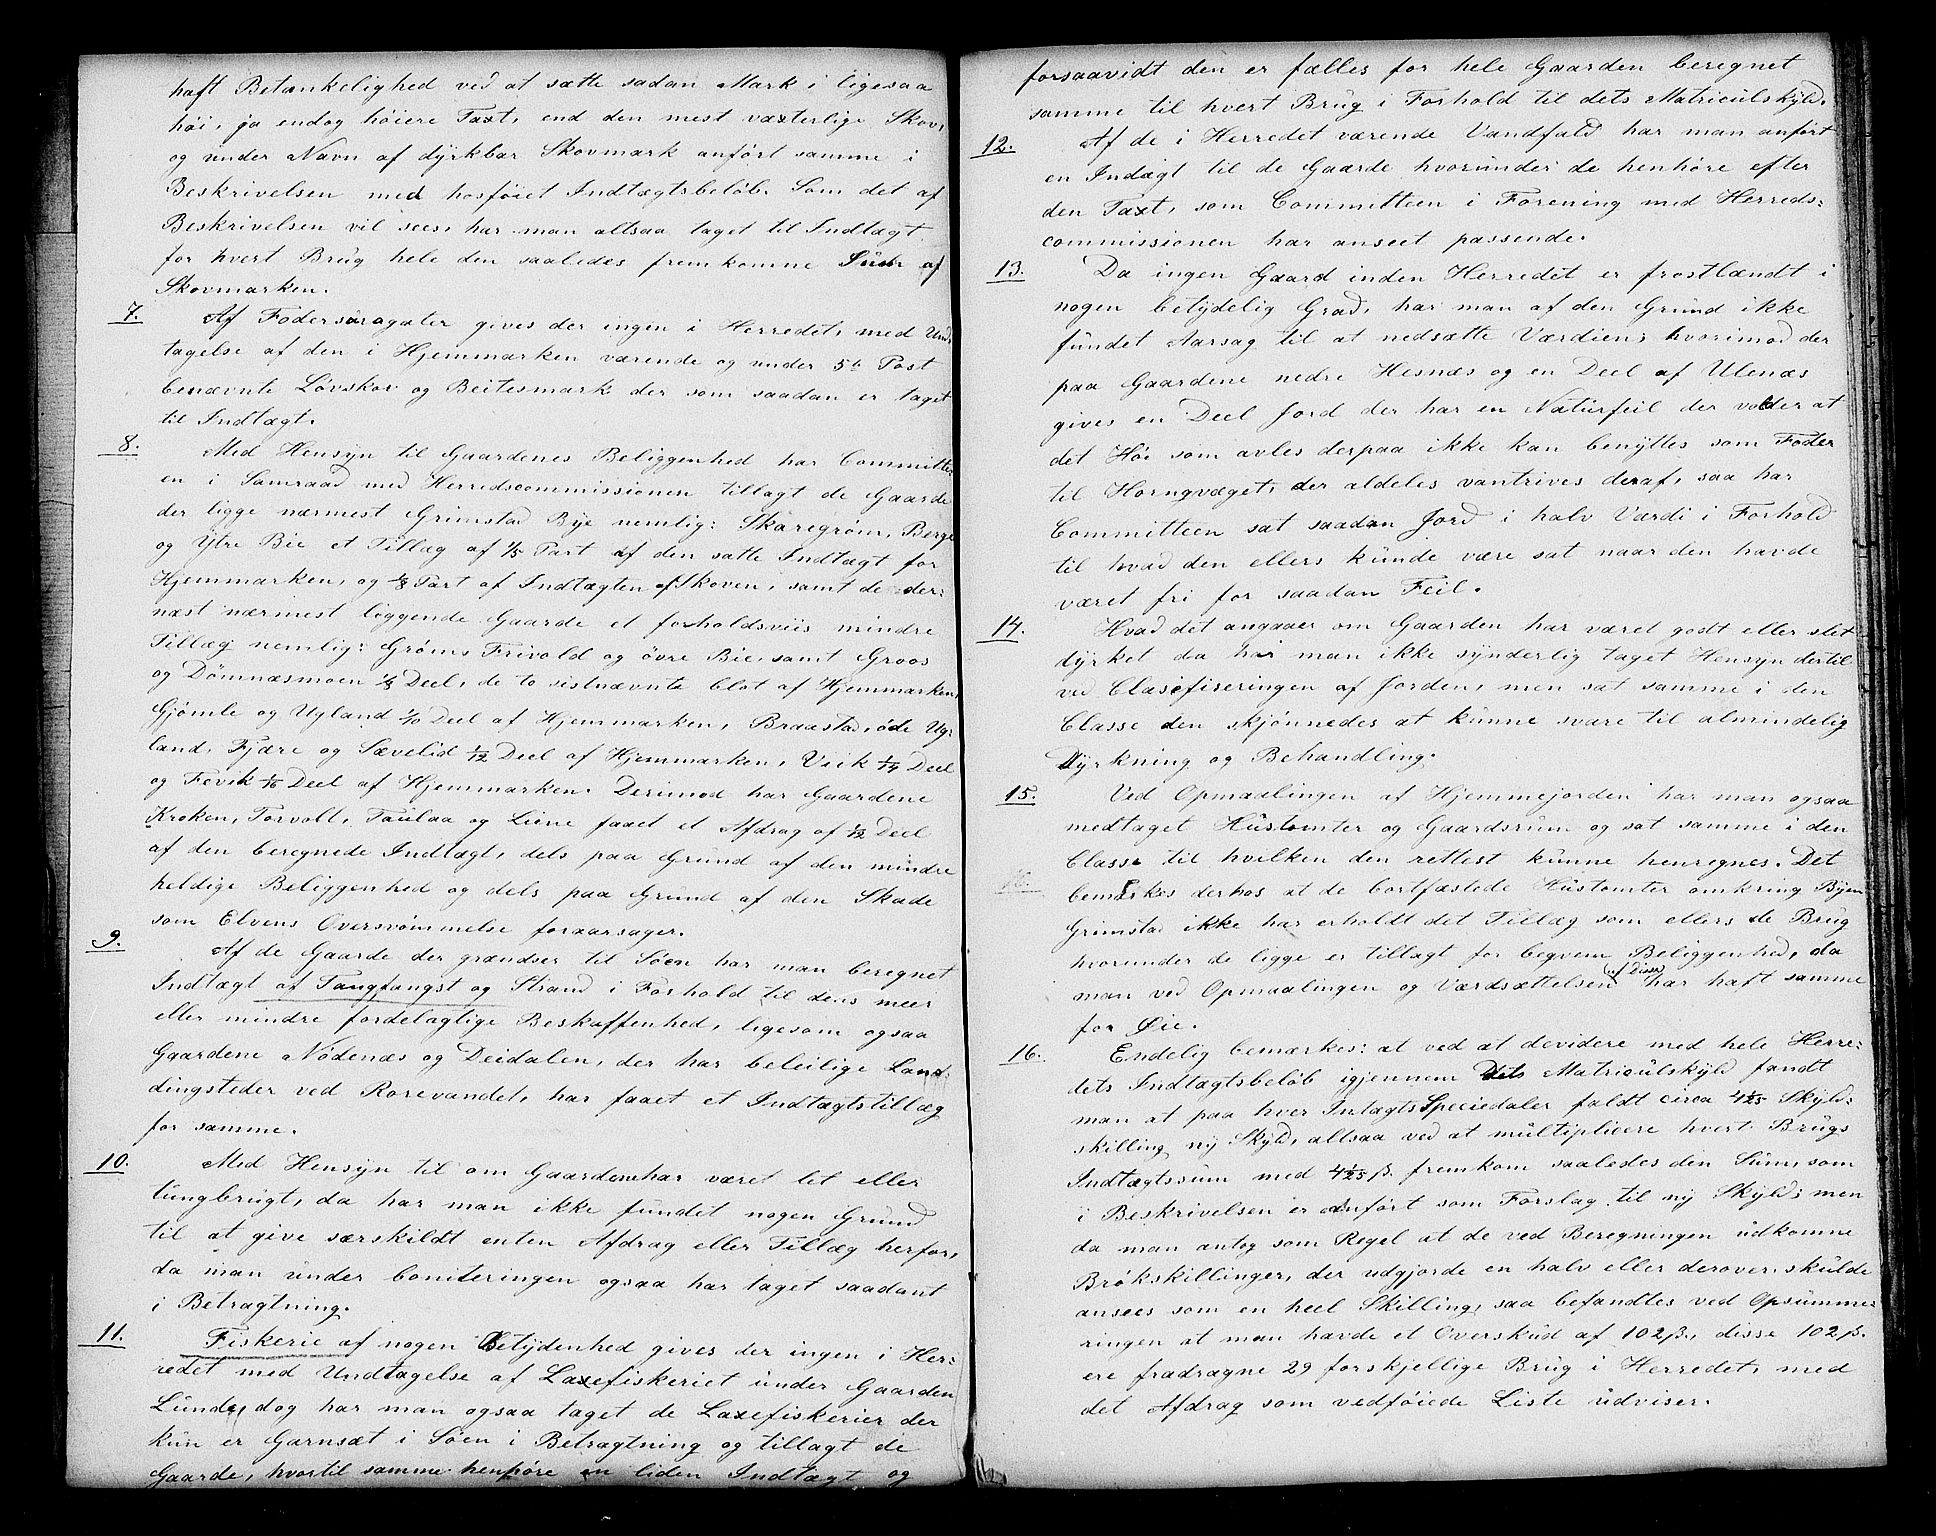 haft Betænkelighed ved at sætte sadan Mark i ligesaa
høi, ja endog høiere Taxt, end den mest væxterlige Skov,
og under Navn af dyrkbar Skovmark anført samme i
Beskrivelsen med hosføiet Indtægtsbeløb. Som det af
Beskrivelsen vil sees, har man altsaa taget til Indtægt
for hvert Brug hele den saaledes fremkomne Sum af
Skovmarken.
7. Af Fodersurogater gives der ingen i Herredet, med Und-
tagelse af den i Hjemmarken værende og under 5te Post
benævnte Løvskov og Beitesmark der som saadan er taget
til Indtægt.
8. Med Hensyn til Gaardenes Beliggenhed har Committe-
en i Samraad med Herredscommissionen tillagt de Gaarde
der ligge nærmest Grimstad Bye nemlig: Skaregrøm, Berge
og Ytre Bie et Tillæg af 1/5 Part af den satte Indtægt for
Hjemmarken, og 1/8 Part af Indtægten af Skoven, samt de der-
næst nærmest liggende Gaarde et forholdsviis mindre
Tillæg nemlig: Grøms Frivold og øvre Bie, samt Groos
og Dømnæsmoen 1/8 Deel, de to sistnævnte blot af Hjemmarken,
Gjømle og Ugland 1/10 Deel af Hjemmarken, Braastad, øde Ug-
land, Fjære og Sævelid 1/12 Deel af Hjemmarken, Viik 1/14 Deel
og Fevik 1/16 Deel af Hjemmarken. Derimod har Gaardene
Kroken, Torvolt, Taulaa og Liene faaet et Afdrag af 1/12 Deel
af den beregnede Indtægt, dels paa Grund af den mindre
heldige Beliggenhed og dels paa Grund af den Skade
som Elvens Oversvømmelse foraarsager.
9. Af de Gaarde der grændser til Søen har man beregnet
Indtægt af Tangfangst og Strand i Forhold til dens meer
eller mindre fordelagtige Beskaffenhed, ligesom ogsaa
Gaardene Nødenæs og Deidalen, der har beleilige Lan-
dingsteder ved Rorevandet, har faaet et Indtægtstillæg
for samme.
10. Med Hensyn til om Gaarden har været let eller
tungbrugt, da har man ikke fundet nogen Grund
til at give særskildt enten Afdrag eller Tillæg herfor,
da man under boniteringen ogsaa har taget saadant
i Betragtning.
11. Fiskerie af nogen Betydenhed gives der ingen i Her-
redet med Undtagelse af Laxefiskeriet under Gaarden
Lunde, dog har man ogsaa taget de Laxefiskerier der
kun er Garnsæt i Søen i Betragtning og tillagt de
Gaarde, hvortil samme henhøre en liden Indtægt og
forsaavidt den er fælles for hele Gaarden beregnet
samme til hvert Brug i Forhold til dets Matriculskyld.
12. Af de i Herredet værende Vandfald har man anført
en Indægt til de Gaarde hvorunder de henhøre efter
den Taxt, som Committeen i Forening med Herreds-
commissionen har anseet passende.
13. Da ingen Gaard inden Herredet er frostlændt i
nogen betydelig Grad, har man af den Grund ikke
fundet Aarsag til at nedsætte Værdien; hvorimod der
paa Gaardene nedre Hesnæs og en Deel af Ulenæs
gives en Deel Jord der har en Naturfeil der volder at
det Høe som avles derpaa ikke kan benyttes som Foder
til Hornqvæget, der aldeles vantrives deraf, saa har
Committeen sat saadan Jord i halv Værdi i Forhold
til hvad den ellers kunde være sat naar den havde
været fri for saadan Feil.
14. Hvad det angaaer om Gaarden har været godt eller slet
dyrket da har man ikke synderlig taget Hensyn dertil
ved Clasifiseringen af Jorden, men sat samme i den
Classe den skjønnedes at kunne svare til almindelig
Dyrkning og Behandling.
15. Ved Opmaalingen af Hjemmejorden har man ogsaa
medtaget Hustomter og Gaardsrum og sat samme i den
Classe til hvilken den rettest kunne henregnes. Det
bemærkes derhos at de bortfæstede Hustomter omkring Byen
Grimstad ikke har erholdt det Tillæg som ellers de Brug
hvorunder de ligge er tillagt for beqvem Beliggenhed, da
man ved Opmaalingen og Værdsættelsen (af Disse) har haft samme
for Øie.
16. Endelig bemærkes: at ved at devidere med hele Herre-
dets Indtægtsbeløb igjennem dets Matriculskyld fandt
man at paa hver Intægts Speciedaler faldt circa 4 1/25 Skyld-
skilling ny Skyld, altsaa ved at multiplicere hvert Brugs
Indtægtssum med 4 1/25 ß. fremkom saaledes den Sum, som
i Beskrivelsen er anført som Forslag til ny Skyld; men
da man antog som Regel at de ved Beregningen udkomne
Brøkskillinger, der udgjorde en halv eller derover, skulde
ansees som en heel Skilling, saa befandtes ved Opsumme-
ringen at man havde et Overskud af 102 ß., disse 102 ß.
ere fradragne 29 forskjellige Brug i Herredet, med
det Afdrag som vedføiede Liste udviser.